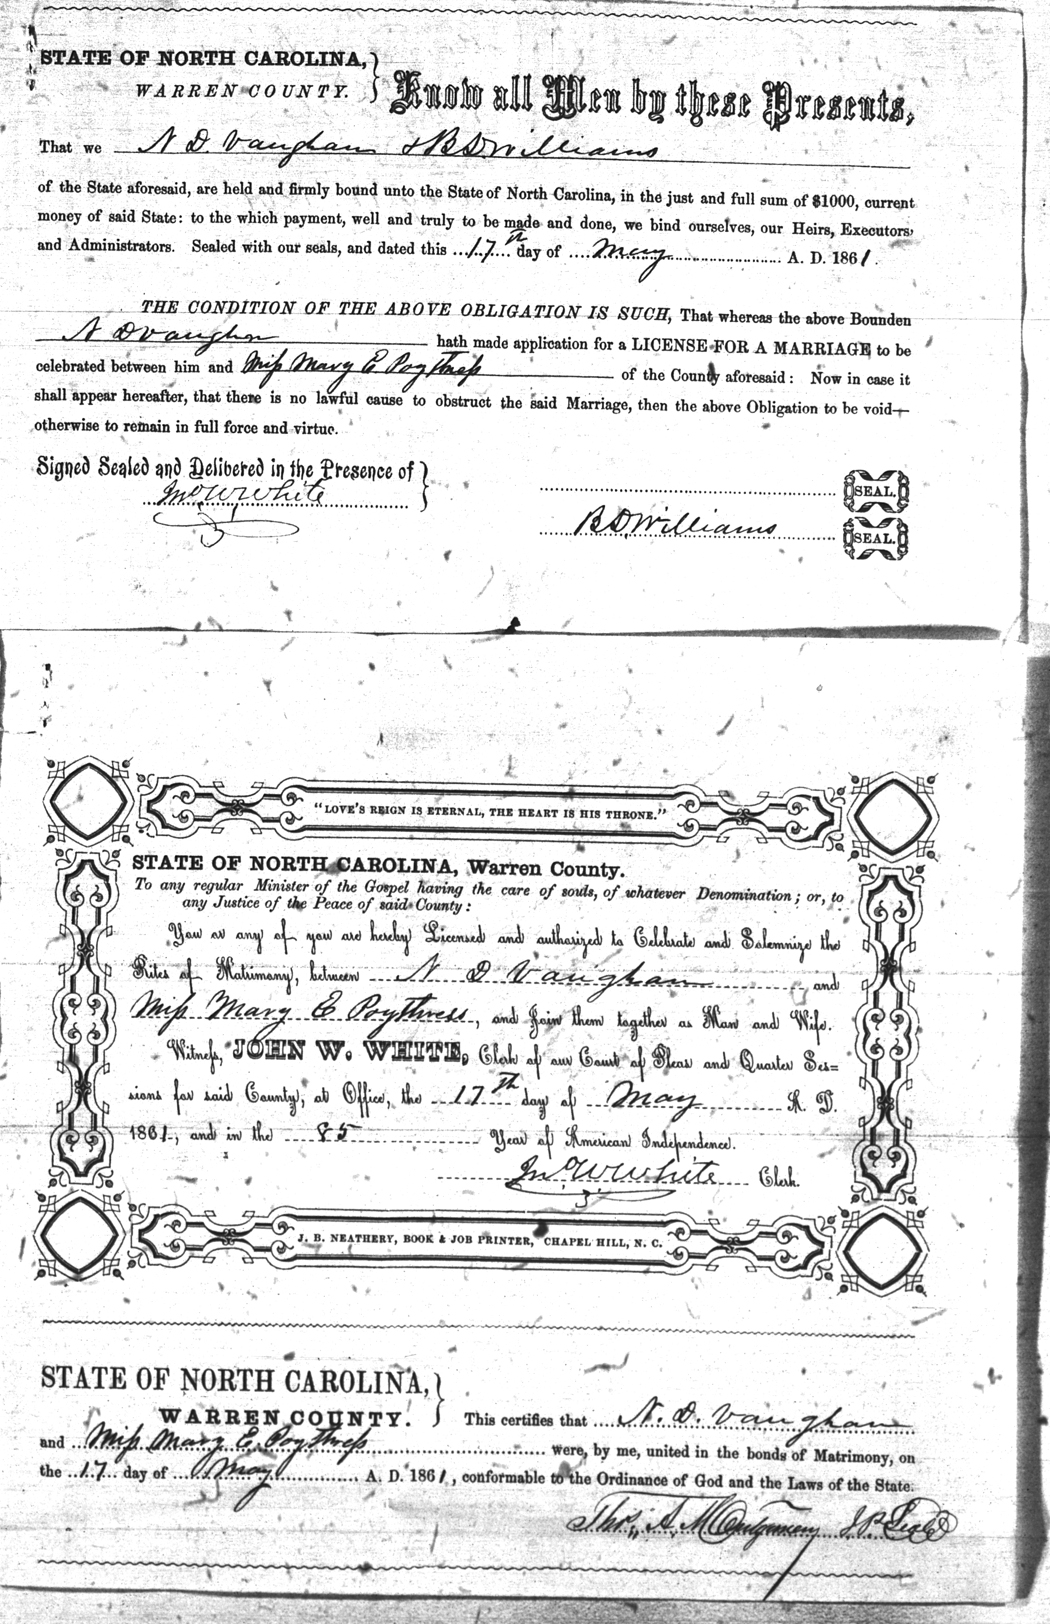 STATE OF NORTH CAROLINA,
WARREN COUNTY.
Know all Men by these Presents,
That we N D Vaughan & B D Williams
of the State aforesaid, are held and firmly bound unto the State of North Carolina, in the just and full sum of $1000, current
money of said State: to the which payment, well and truly to be made and done, we bind ourselves, our Heirs, Executors,
and Administrators. Sealed with our seals, and dated this 17th day of May A. D. 1861.
THE CONDITION OF THE ABOVE OBLIGATION IS SUCH, That whereas the above Bounden
N D Vaughan hath made application for a LICENSE FOR A MARRIAGE to be
celebrated between him and Miss Mary E Poythress of the County aforesaid: Now in case it
shall appear hereafter, that there is no lawful cause to obstruct the said Marriage, then the above Obligation to be void—
otherwise to remain in full force and virtue.
Signed Sealed and Delibered in the Presence of
Jno W White
SEAL.
B D Williams SEAL.
"LOVE'S REIGN IS ETERNAL, THE HEART IS HIS THRONE."
STATE OF NORTH CAROLINA, Warren County.
To any regular Minister of the Gospel having the care of souls, of whatever Denomination; or, to
any Justice of the Peace of said County:
You or any of you are hereby Licensed and authorized to Celebrate and Solemnize the
Rites of Matrimony, between N D Vaughan and
Miss Mary E Poythress, and Join them together as Man and Wife.
Witness, JOHN W. WHITE, Clerk of our Court of Pleas and Quarter Ses=
sions for said County, at Office, the 17th day of May A. D.
1861, and in the 85 Year of American Independence.
Jno W White Clerk.
J. B. NEATHERY, BOOK & JOB PRINTER, CHAPEL HILL, N. C.
STATE OF NORTH CAROLINA,
WARREN COUNTY.
This certifies that N. D. Vaughan
and Miss Mary E. Poythress were, by me, united in the bonds of Matrimony, on
the 17 day of May A. D. 1861, conformable to the Ordinance of God and the Laws of the State.
Thos. A. Montgomery J P Seal